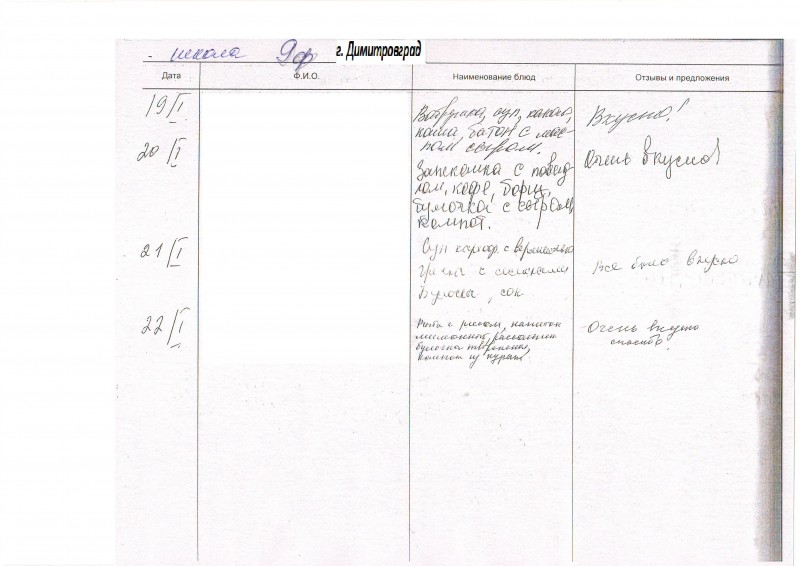 школа г. Димитровград
Дата Ф.И.О. Наименование блюд Отзывы и предложения
19/I Ватрушка, суп, какао, Вкусно!
каша, батон с мас-
лом сыром.
20/I Запеканка с повид- Очень вкусно!
лом, кофе, борщ,
булочка с сыром,
компот.
21/I Суп картоф. с вермишелью Все было вкусно
Греча с сосисками
Булочка, сок
22/I Рыба с рисом, напиток Очень вкусно
лимонный, рассольник спасибо.
булочка творожная,
компот из кураги